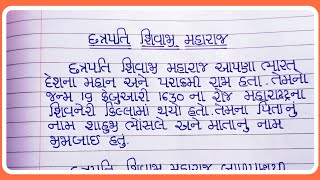 છત્રપતિ શિવાજી મહારાજ
છત્રપતિ શિવાજી મહારાજ આપણા ભારત
દેશના મહાન અને પરાક્રમી રાજા હતા. તેમનો
જન્મ 19 ફેબ્રુઆરી 1630 ના રોજ મહારાષ્ટ્રના
શિવનેરી કિલ્લામાં થયો હતો. તેમના પિતાનું
નામ શાહજી ભોંસલે અને માતાનું નામ
જીજાબાઈ હતું.
છત્રપતિ શિવાજી મહારાજ